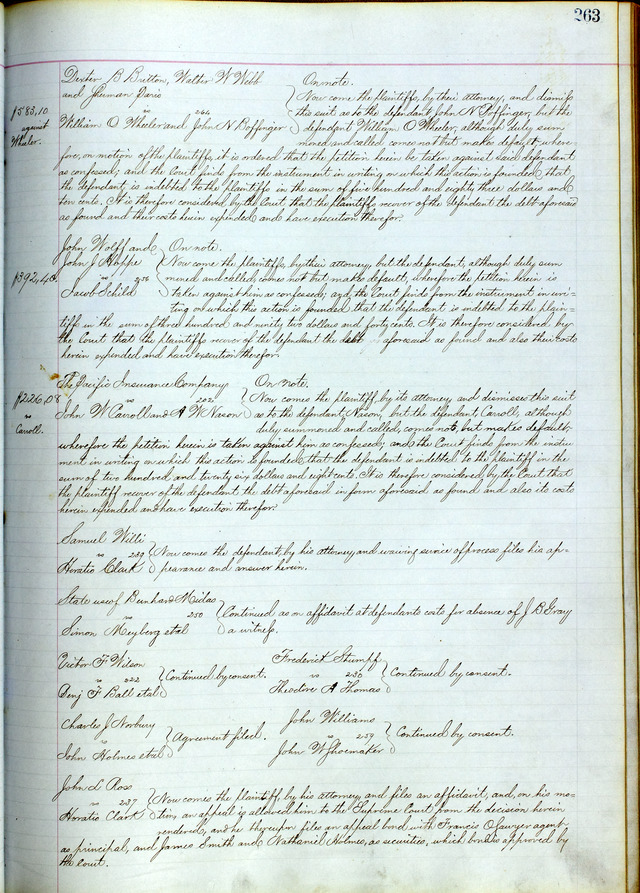 263
Dexter B Britton, Walter W Webb
and Sherman Paris
vs 264
William O Wheeler and John N Boffinger
On note.
$583,10
against
Wheeler.
Now come the plaintiffs, by their attorney, and dismiss
this suit as to the defendant John N Boffinger, but the
defendant William O Wheeler, although duly sum
moned and called comes not but makes default, where-
fore, on motion of the plaintiffs, it is ordered that the petition herein be taken against said defendant
as confessed; and the Court finds from the instrument in writing, on which the action is founded, that
the defendant is indebted to the plaintiffs in the sum of five hundred and eighty three dollars and
ten cents. It is therefore considered by the Court that the plaintiffs recover of the defendant the debt aforesaid
as found and their costs herein expended and have execution therefor.
John Wolff and
John J Hoppe
vs 256
Jacob Schild
On note.
$392,40.
Now come the plaintiffs, by their attorney, but the defendant, although duly sum
moned and called, comes not but makes default, wherefore the petition herein is
taken against him as confessed; and the Court finds from the instrument in wri-
ting on which this action is founded that the defendant is indebted to the plain-
tiffs in the sum of three hundred and ninity two dollars and forty cents. It is therefore considered by
the Court that the plaintiffs recover of the defendant the debt aforesaid as found and also their costs
herein expended and have execution therefor.
The Pacific Insurance Company
vs 202
John W Carroll and A W Nason
On note.
$226,08
vs
Carroll.
Now comes the plaintiff, by its attorney, and dismisses this suit
as to the defendant, Nason, but the defendant, Carroll, although
duly summoned and called, comes not, but makes default,
wherefore the petition herein is taken against him as confessed; and the Court finds from the instru-
ment in writing on which this action is founded, that the defendant is indebted to the plaintiff in the
sum of two hundred and twenty six dollars and eight cents. It is therefore considered by the Court that
the plaintiff recover of the defendant the debt aforesaid in form aforesaid as found and also its costs
herein expended and have execution therefor.
Samuel Willi
vs 239
Horatio Clark
Now comes the defendant, by his attorney, and waiving service of process files his ap-
pearance and answer herein.
State use of Bunhard Midas
vs 250
Simon Meyberg et al
Continued as on affidavit at defendants costs for absence of J B Gray
a witness.
Victor F Wilson
vs 222
Benj F Ball et al
Continued by consent.
Frederick Stumpf
vs 230
Theodore A Thomas
Continued by consent.
Charles J Norbury
vs
John Holmes et al
Agreement filed.
John Williams
vs 259
John W Shoemaker
Continued by consent.
John L Ross
vs 237
Horatio Clark
Now comes the plaintiff, by his attorney, and files an affidavit, and, on his mo-
tion, an appeal is allowed him to the Supreme Court from the decision herein
rendered, and he thereupon files an appeal bond with Francis O Sawyer agent,
as principal, and James Smith and Nathaniel Holmes, as securities, which bond is approved by
the Court.